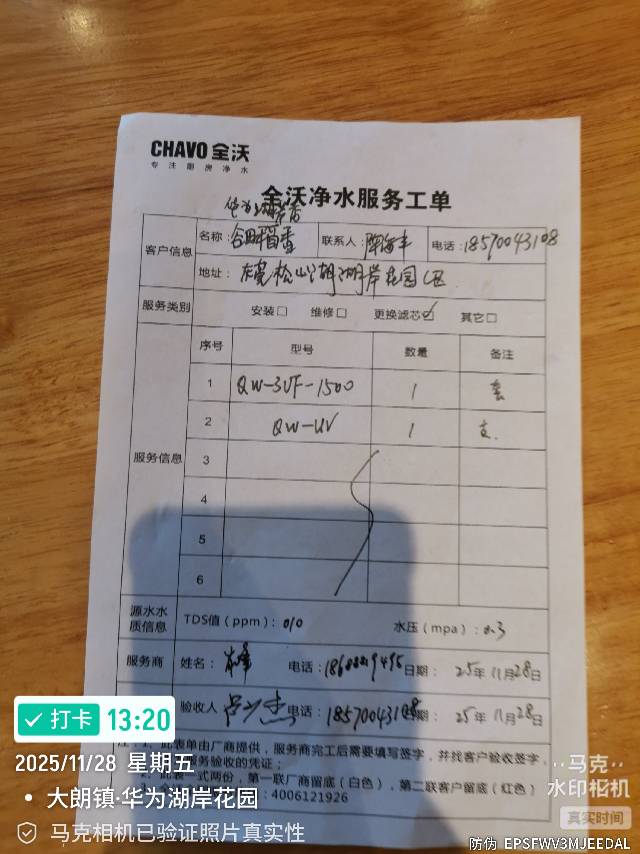 CHAVO 全沃
专注厨房净水
全沃净水服务工单
客户信息
名称：谷田稻香 联系人： 电话：18570043108
地址：东莞松山湖湖岸花园C区
服务类别 安装□ 维修□ 更换滤芯☑ 其它□
服务信息
序号 型号 数量 备注
1 QW-3UF-1500 1 套
2 QW-UV 1 支
3
4
5
6
源水水质信息 TDS值（ppm）：010 水压（mpa）：0.3
服务商 姓名： 电话： 日期： 25年11月28日
验收人 电话：18570043108 期： 25年11月28日
注：1、此表单由厂商提供，服务商完工后需要填写签字，并找客户验收签字，
服务验收的凭证；
2、此表一式两份，第一联厂商留底（白色），第二联客户留底（红色）
4006121926
打卡 13:20
2025/11/28 星期五
大朗镇·华为湖岸花园
马克相机已验证照片真实性
马克
水印相机
真实时间
防伪 EPSFWV3MJEEDAL